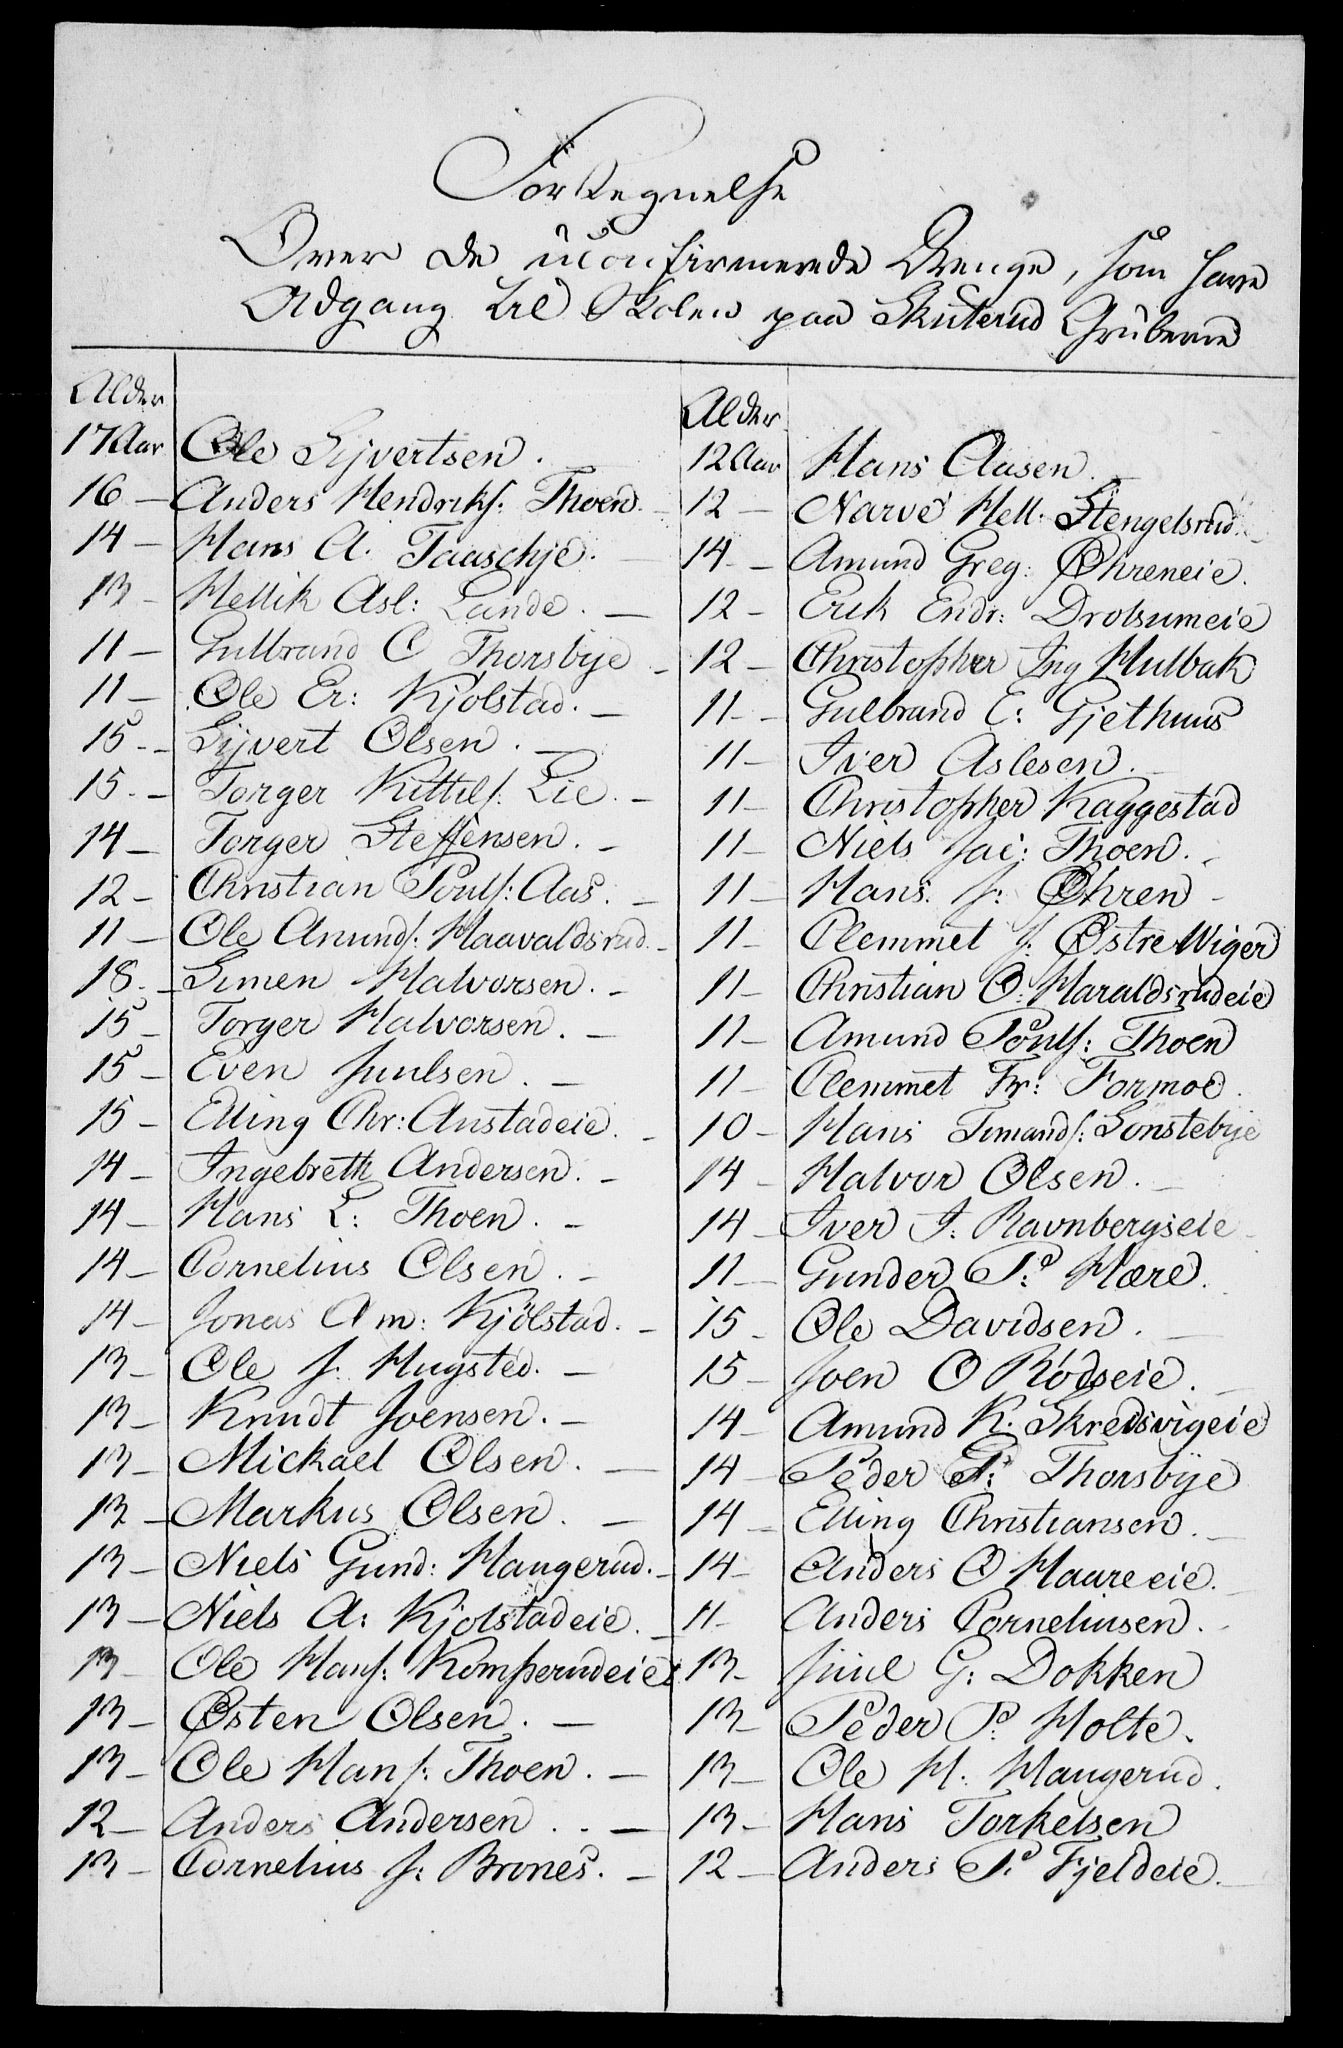 Fortegnelse
Over de uconfirmerede Drenge, som have
Adgang til Skolen paa Skuterud Gruberne
Alder
17 Aar Ole Sijvertsen.
16 — Anders Hendriks: Thoen. —
14 — Hans A. Taaschje. —
13 — Hellik Asl: Lunde. —
11 — Gulbrand C Thorsbye —
11 — Ole Er: Kjølstad. —
15 — Sijvert Olsen. —
15 — Torger Kittils: Lie. —
14 — Torger Steffensen. —
12 — Christian Pouls: Aas. —
11 — Ole Amunds: Haavaldsrud —
18 — Simen Halvorsen. —
15 — Torger Halvorsen. —
15 — Even Juulsen. —
15 — Elling Chr: Anstadeie. —
14 — Ingebreth Andersen. —
14 — Hans L: Thoen. —
14 — Cornelius Olsen. —
14 — Jonas Am: Kjölstad. —
13 — Ole J. Hugsted. —
13 — Knudt Joensen. —
13 — Mickael Olsen. —
12 — Markus Olsen. —
13 — Niels Gund: Haugerud. —
13 — Niels A: Kjolstadeie. —
13 — Ole Hans: Komperudeie
13 — Østen Olsen. —
13 — Ole Hans: Thoen. —
12 — Anders Andersen. —
13 — Cornelius J: Brones. —
Alder
12 Aar Hans Aasen
12 — Narve Hell. Stengelsrud. —
14 — Amund Greg: Øhreneie.
12 — Erik Endr: Drolsumeie
12 — Christopher Ing Hulbak
11 — Gulbrand E: Gjethuus
11 — Iver Aslesen. —
11 — Christopher Kaggestad
11 — Niels Jac: Thoen. —
11 — Hans. J: Øhren —
11 — Clemmet J: Østre Wiger
11 — Christian O: Haraldsrudeie
11 — Amund Pouls: Thoen
11 — Clemmet Fr: Formoe.
10 — Hans Simands: Sönstebye
14 — Halvor Olsen. —
14 — Iver J: Ravnbergseie —
11 — Gunder P: Hære.
15 — Ole Davidsen. —
15 — Joen O Rødseie. —
14 — Amund K. Skredsvigeie
14 — Peder P: Thorsbye
14 — Elling Christiansen. —
14 — Anders O Haareeie. —
11 — Anders Corneliusen. —
13 — Juul G: Dokken
13 — Peder P: Holte.
13 — Ole H: Haugerud.
13 — Hans Torkelsen
12 — Anders P: Fjeldeie. —